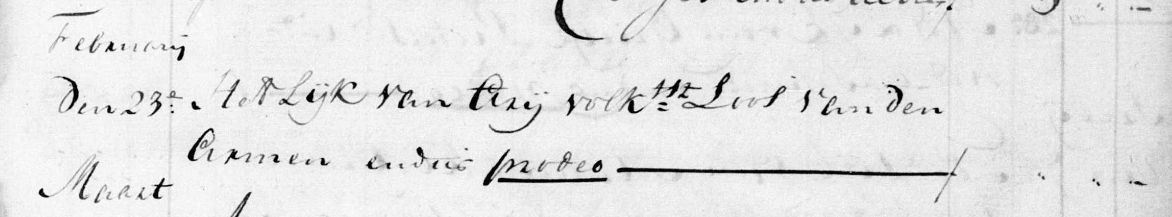 Februarij
Den 23t: Het Lijk van Arij volktst Loos van den
Armen endus prodeo
Maart